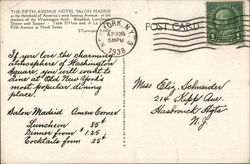 THE FIFTH AVENUE HOTEL SALON MADRID
At the threshold of America's most famous Avenue in the
shadow of the Washington Arch - Breakfast, Luncheon,
Dinner and Supper
Fifth Avenue at Ninth Street.
YORK, N.Y.
APR 25
5 PM
1938
POST CARD
If you love the charming
atmosphere of Washington
Square, you will want to
dine at the New York
most popular dining
place.
Salon Madrid Amen Corner
Luncheon 85¢
Dinner from $1.25
Cocktails from 25¢
Miss Eliz. Schneider
214 Kipp Ave.
Hasbrouck Hgts
N.J.